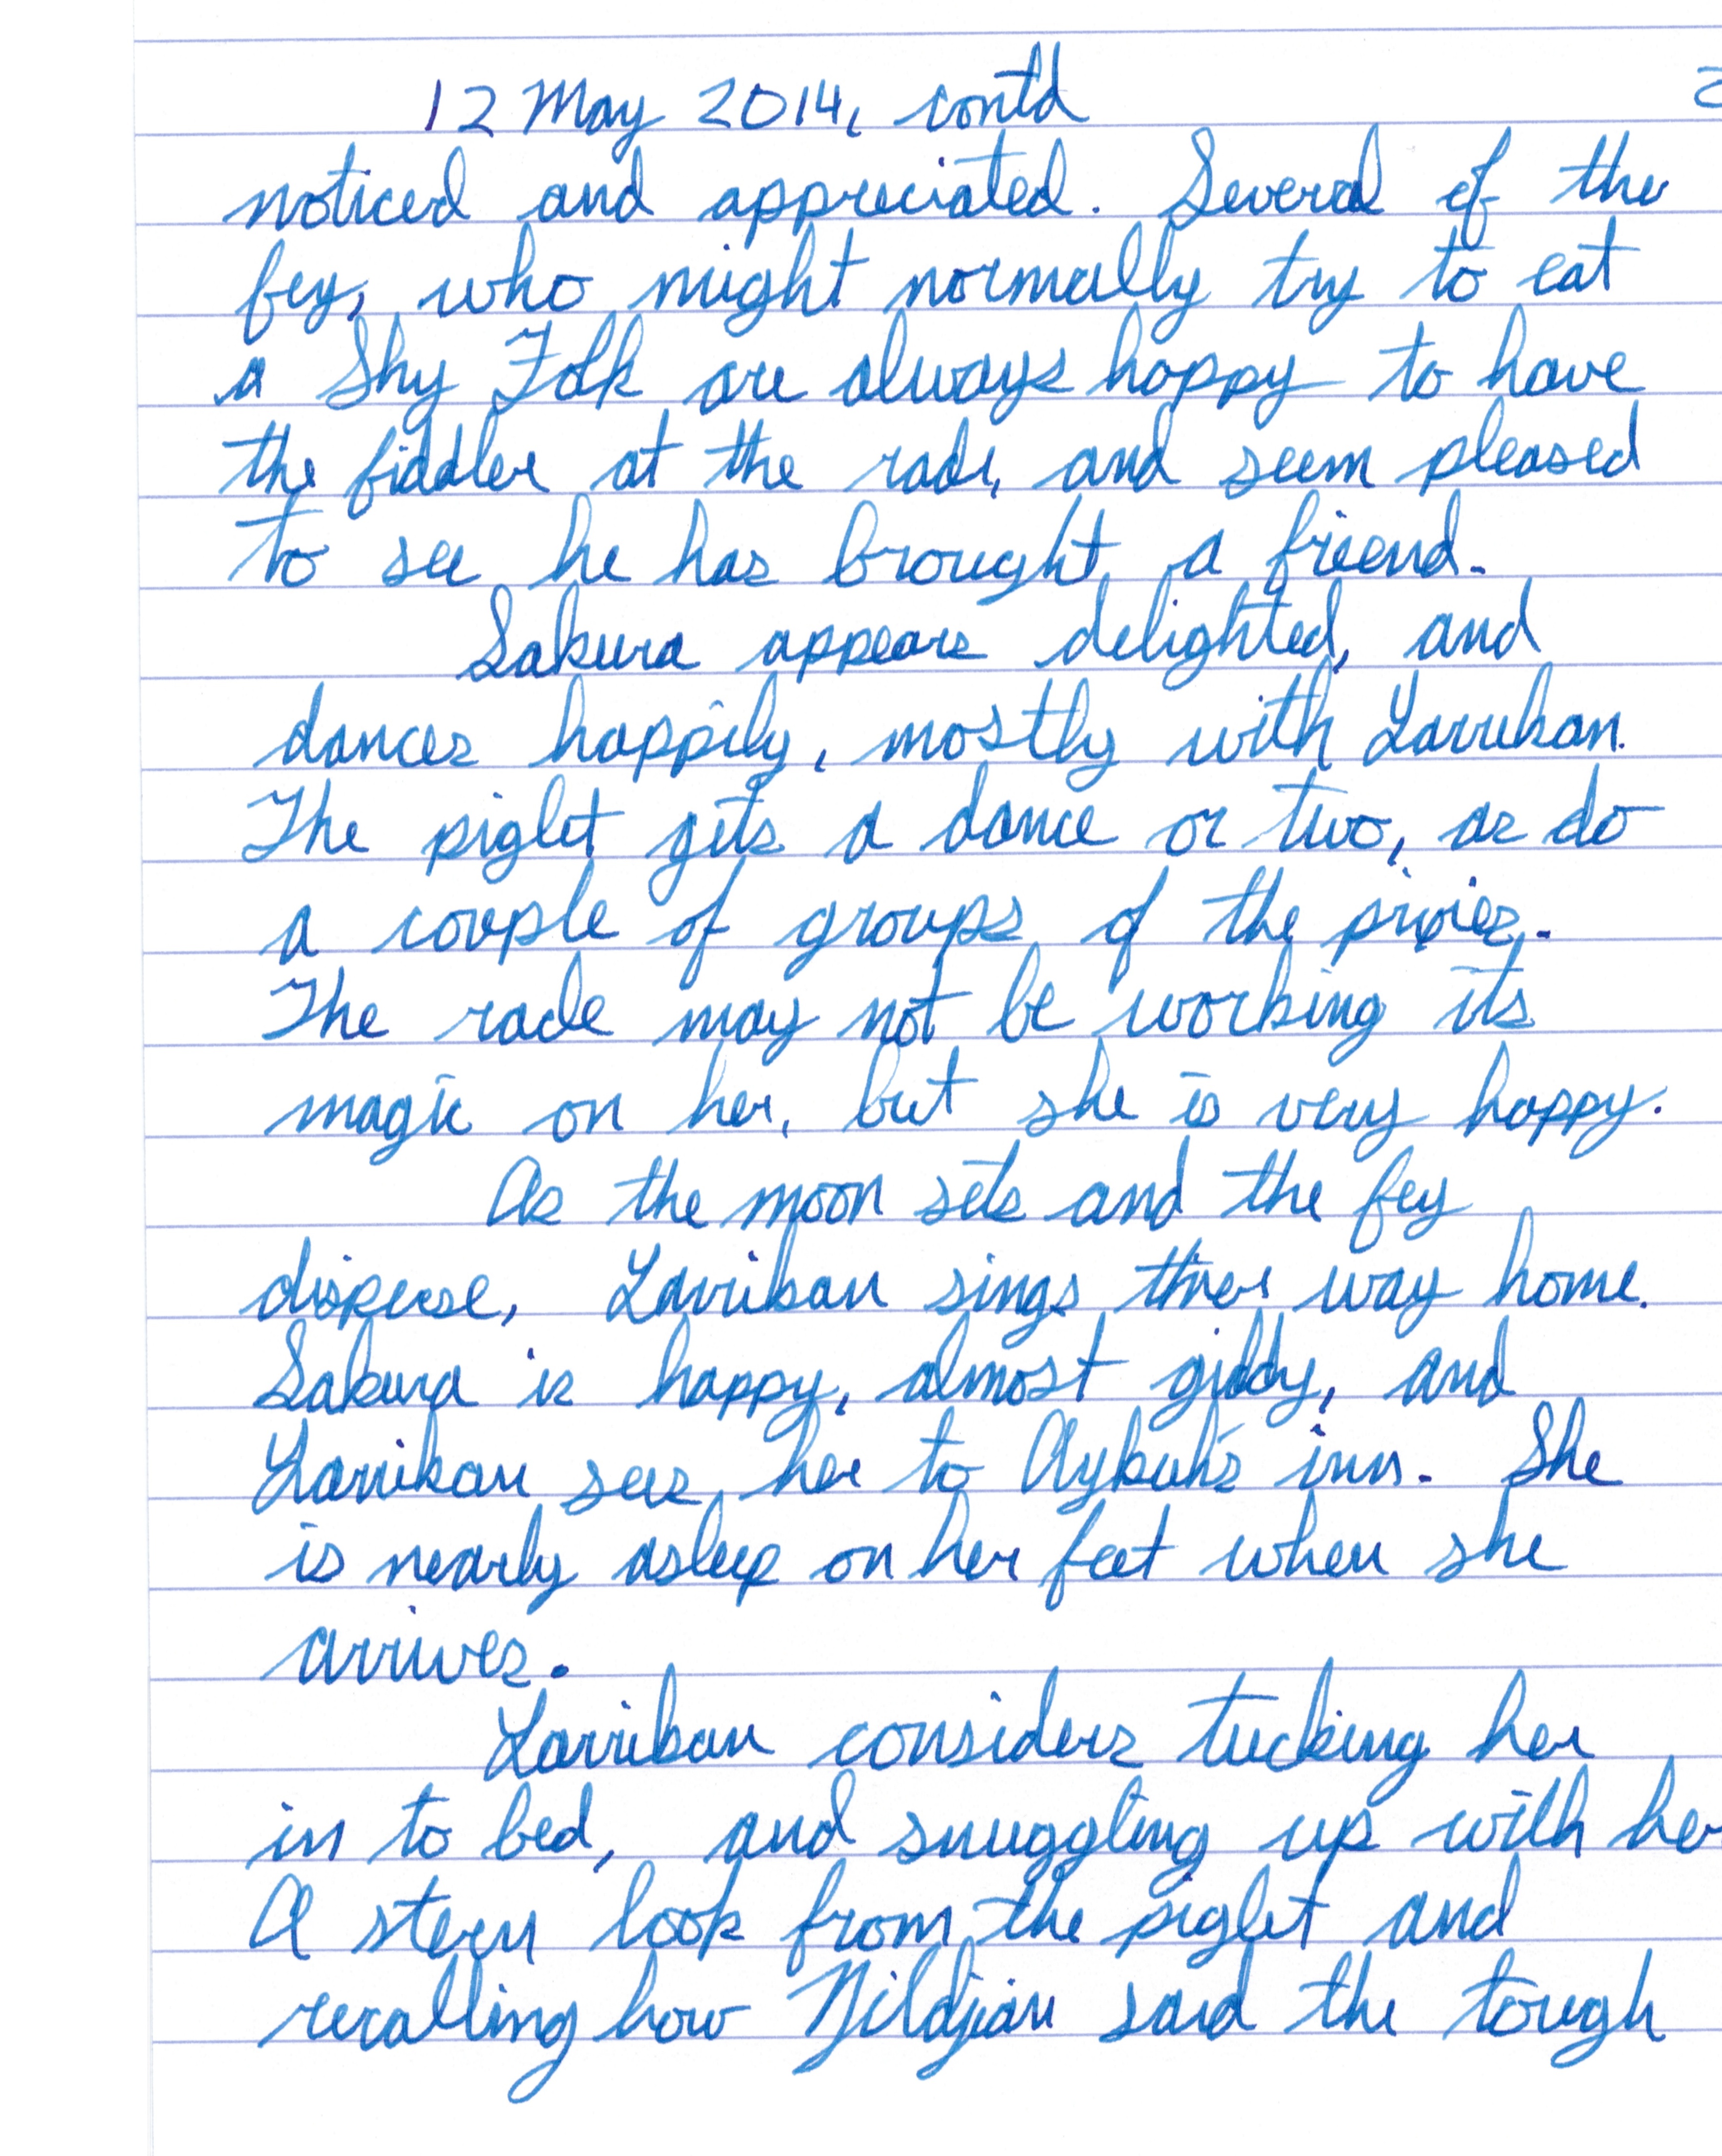 12 May 2014, contd 2
noticed and appreciated. Several of the
fey, who might normally try to eat
a Shy Folk are always happy to have
the fiddler at the rade, and seem pleased
to see he has brought a friend.
Sakura appears delighted, and
dances happily, mostly with Larrikan.
The piglet gets a dance or two, as do
a couple of groups of the pixies.
The rade may not be working its
magic on her, but she is very happy.
As the moon sets and the fey
disperse, Larrikan sings their way home.
Sakura is happy, almost giddy, and
Larrikan sees her to Aykuh's inn. She
is nearly asleep on her feet when she
arrives.
Larrikan considers tucking her
in to bed, and snuggling up with her
A stern look from the piglet and
recalling how Nildjian said the tough